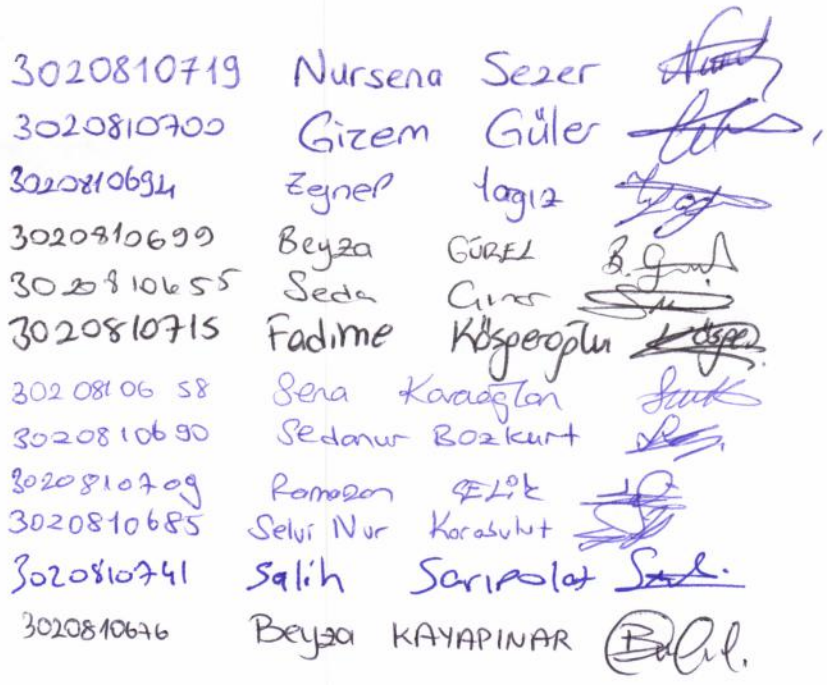 3020810719 Nursena Sezer
3020810700 Gizem Güler
3020810694 Zeynep Yagız
3020810699 Beyza GÜREL B.
3020810655 Seda
3020810715 Fadime Kösperoğlu
3020810658 Sena Karaoğlan
3020810690 Sedanur Bozkurt
3020810709 Ramazan ÇELİK
3020810685 Selvi Nur Karabulut
3020810741 Salih Sarıpolat
3020810676 Beyza KAYAPINAR